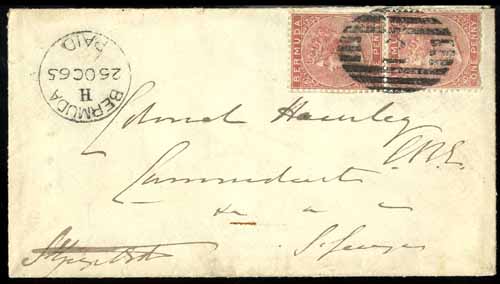 BERMUDA
ONE PENNY
BERMUDA
ONE PENNY
PAID
25 OC 65
H
BERMUDA
Colonel
Commandant
&c a a
St Georges